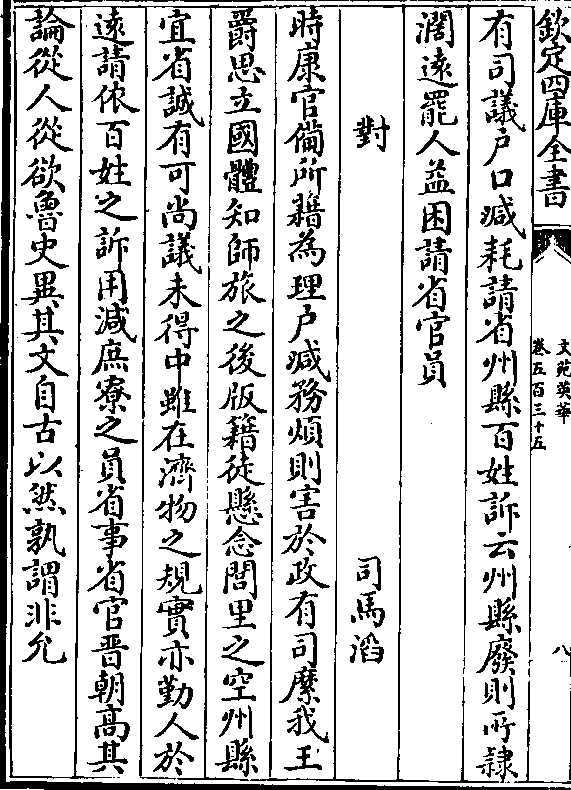 欽定四庫全書
文苑英華
卷五百三十五
八
有司議户口减耗請省州縣百姓訴云州縣廢則所隸
濶遠罷人益困請省官員
對
司馬滔
時康官備所籍為理户减務煩則害於政有司縻我王
爵思立國體知師旅之後版籍徒懸念閭里之空州縣
宜省誠有可尚議未得中雖在濟物之規實亦勤人於
逺請依百姓之訴用减庶寮之員省事省官晋朝高其
論從人從欲魯史異其文自古以然孰謂非允